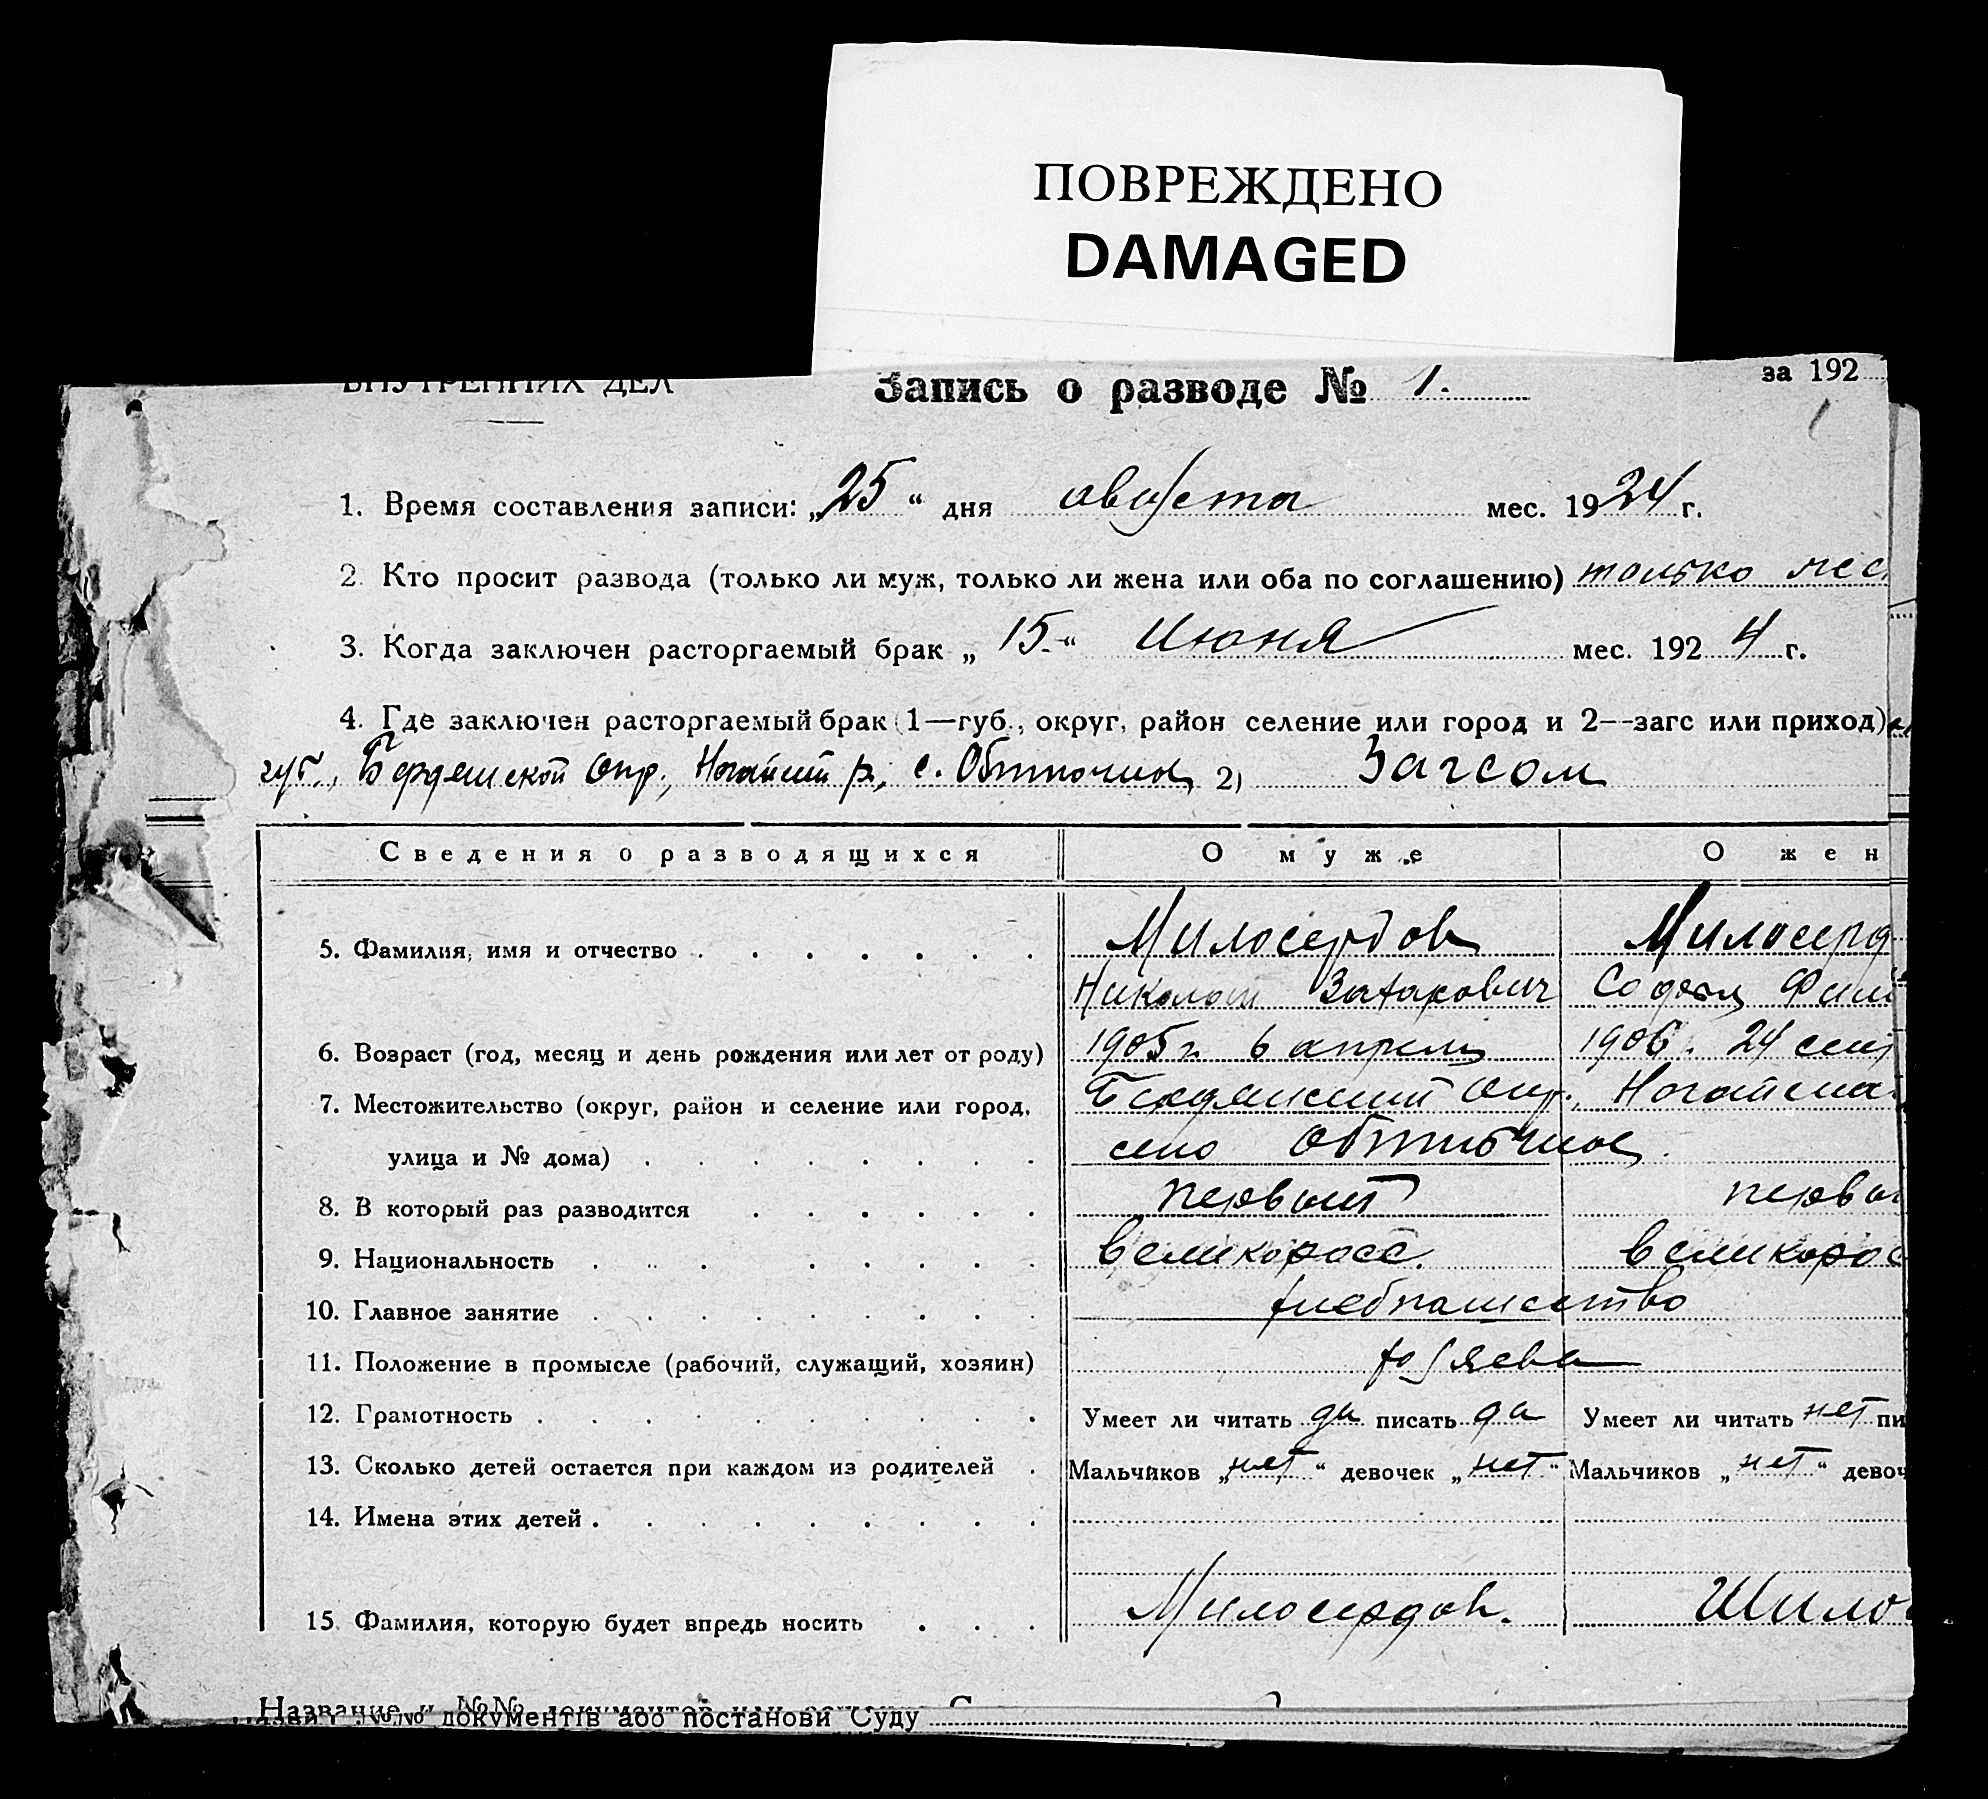 ПОВРЕЖДЕНО
DAMAGED
ВНУТРЕННИХ ДЕЛ
Запись о разводе № 1.
за 192
1. Время составления записи: „25“ дня августа мес. 1924 г.
2. Кто просит развода (только ли муж, только ли жена или оба по соглашению) только
3. Когда заключен расторгаемый брак „15“ Июня мес. 1924 г.
4. Где заключен расторгаемый брак (1—губ., округ, район селение или город и 2—загс или приход)
губ., Бердянской Окр., р., с. Обиточное 2) Загсом
Сведения о разводящихся О муже О жен
5. Фамилия, имя и отчество Милосердов Милосерд
Николай Захарович Фил
6. Возраст (год, месяц и день рождения или лет от роду) 1905 г. 6 апреля 1906. 24 сент
7. Местожительство (округ, район и селение или город, Бердянский Окр., Ногайск
улица и № дома) село Обиточное
8. В который раз разводится первый первы
9. Национальность великоросс. великорос
10. Главное занятие хлебопашество
11. Положение в промысле (рабочий, служащий, хозяин) хозяева
12. Грамотность Умеет ли читать да писать да Умеет ли читать нет пи
13. Сколько детей остается при каждом из родителей Мальчиков „нет“ девочек „нет“ Мальчиков „нет“ девоч
14. Имена этих детей
15. Фамилия, которую будет впредь носить Милосердов. Шило
Название и №№
документів або постанови Суду